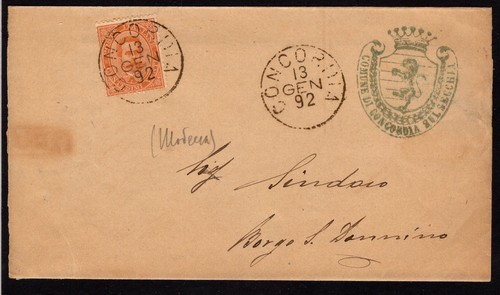 CONCORDIA
13
GEN
92
CONCORDIA
13
GEN
92
COMUNE DI CONCORDIA SUL SECCHIA
(Modena)
Sig Sindaco
Borgo S. Donnino